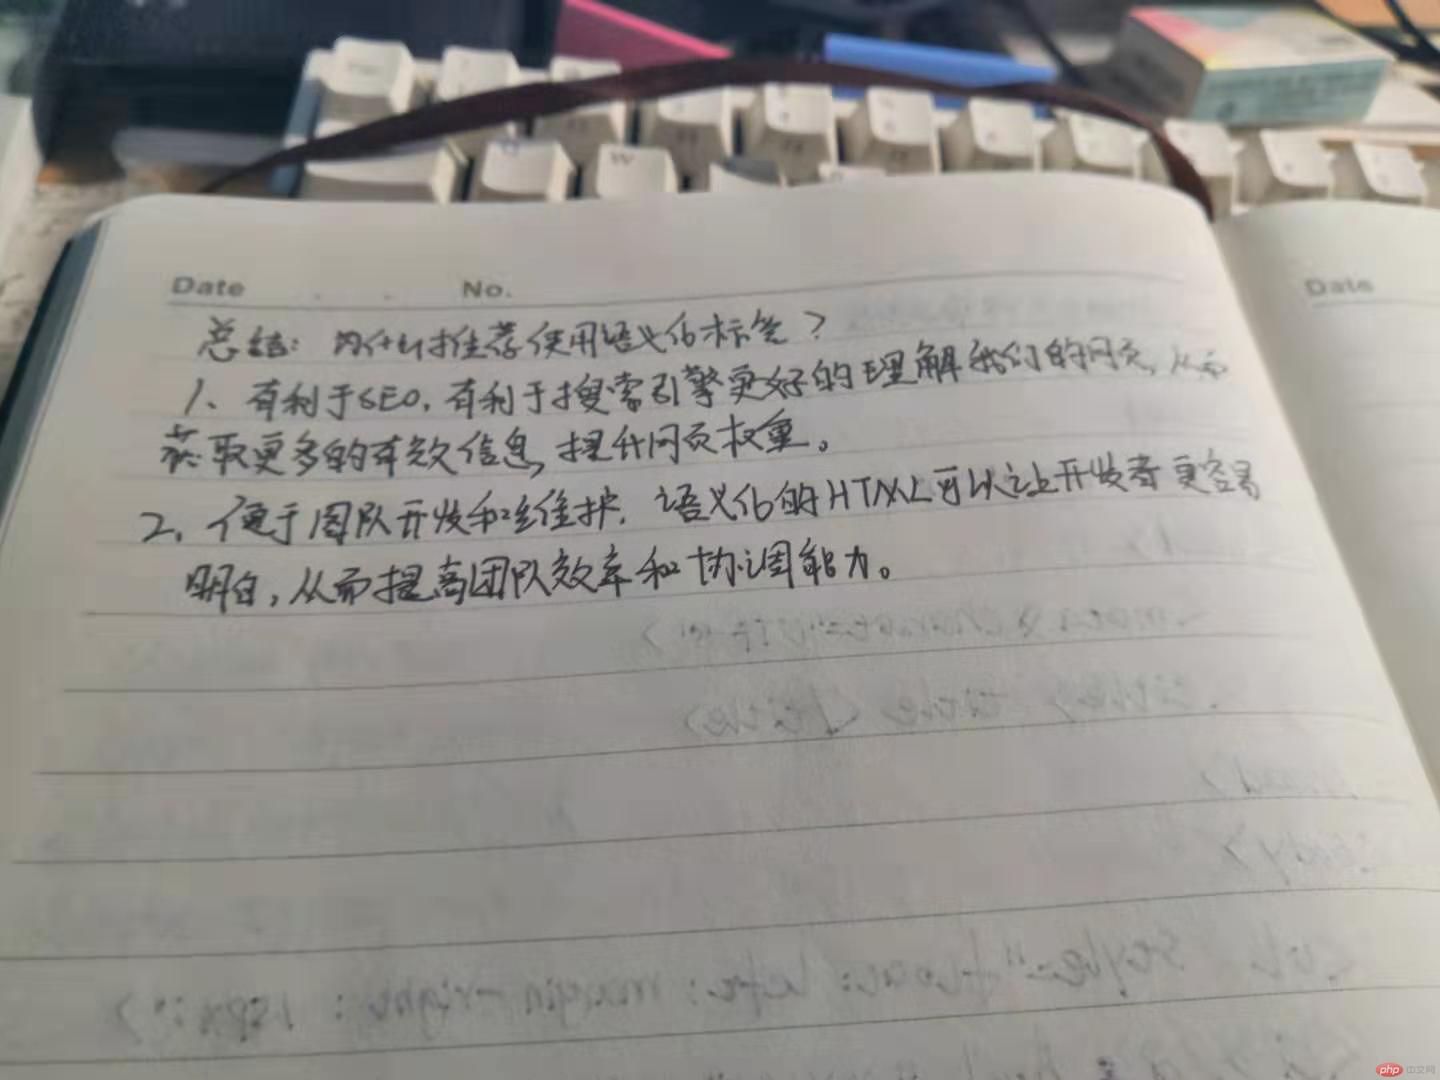 Date No.
Date
总结：为什么推荐使用语义化标签？
1、有利于SEO，有利于搜索引擎更好的理解我们的网页，从而
获取更多的有效信息，提升网页权重。
2、便于团队开发和维护，语义化的HTML可以让开发者更容易
明白，从而提高团队效率和协调能力。
W
php 中文网